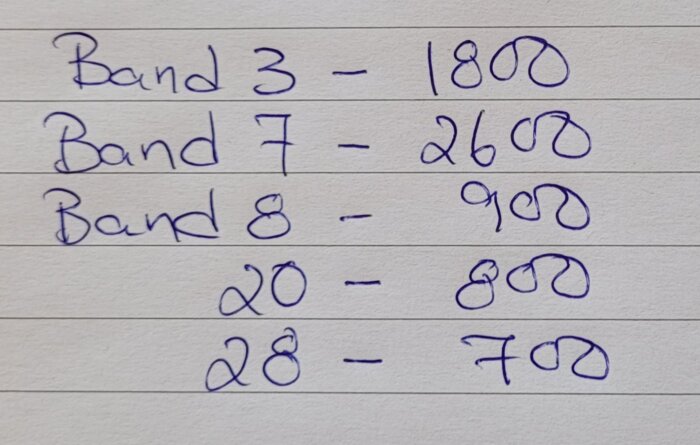 Band 3 - 1800
Band 7 - 2600
Band 8 - 900
20 - 800
28 - 700